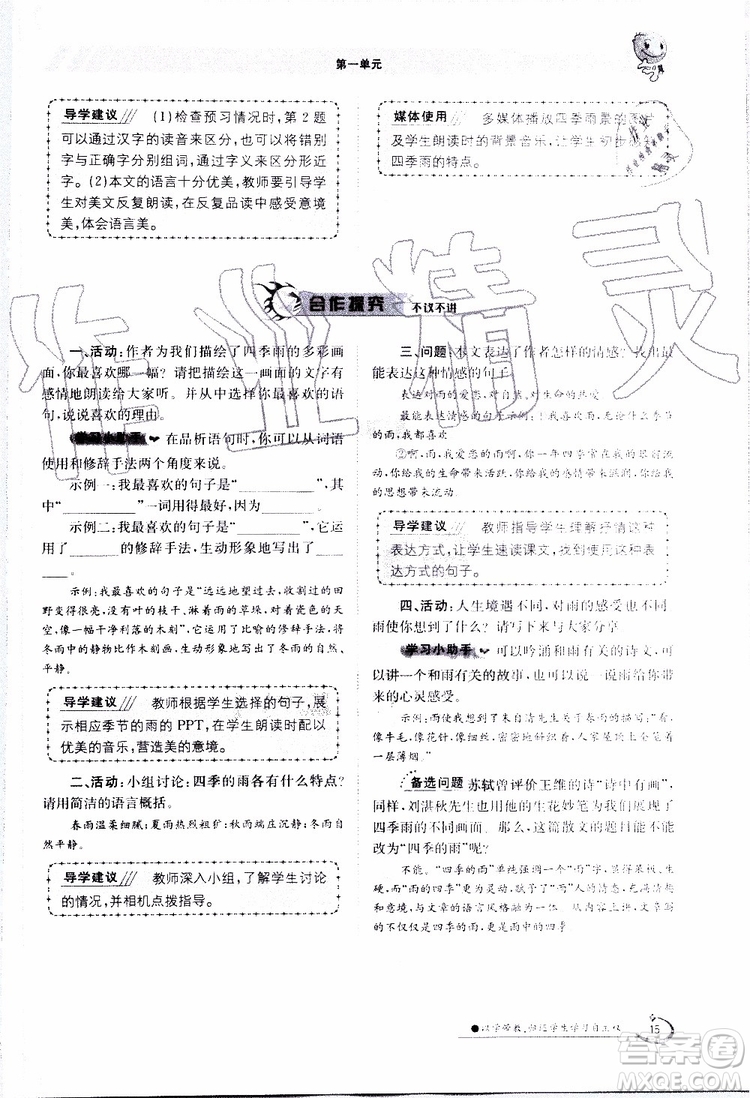 第一单元
导学建议 (1)检查预习情况时,第2题
可以通过汉字的读音来区分,也可以将错别
字与正确字分别组词,通过比较来区分形近
字。(2)本文的语言十分优美,教师要引导学
生对美文反复朗读,在反复品读中感受意境
美,体会语言美。
合作探究 不议不讲
一、活动:作者为我们描绘了四季雨的多彩画
面,你最喜欢哪一幅?请把描绘画面的文字有
感情地朗读给大家听。并从中选择你最喜欢的语
句,说说喜欢的理由。
学习小助手 在品析语句时,你可以从词语
使用和修辞手法两个角度来说。
示例一:我最喜欢的句子是“________”,其
中“________”一词用得很好,因为________。
示例二:我最喜欢的句子是“________”,它运
用了________的修辞手法,生动形象地写出了
________。
示例:我最喜欢的句子是“远远地望过去,收割过的田
野变得很亮,没有叶的枝干、淋着雨的草垛,对着瓷色的天
空,像一幅干净利落的木刻”,它运用了比喻的修辞手法,将
冬雨中的静物比作木刻,生动形象地写出了冬雨的自然、
平静。
导学建议 教师根据学生选择的句子,展
示相应季节的雨的PPT,在学生朗读时配以
优美的音乐,营造美的意境。
二、活动:小组讨论:四季的雨各有什么特点?
请用简洁的语言概括。
春雨温柔细腻;夏雨热烈粗犷;秋雨端庄沉静;冬雨自然
平静。
导学建议 教师深入小组,了解学生讨论
的情况,并相机点拨指导。
媒体使用 多媒体播放四季雨景的图片
及学生朗读时的背景音乐,让学生初步感
四季雨的特点。
三、问题:本文表达了作者怎样的情感?找出最
能表达这种情感的句子。
表达了作者对雨的爱恋,对生命的热爱。
最能表达情感的句子示例:①
的,我都喜欢
②啊,雨,我爱恋的雨啊,你一年四季常在我的眼前流动,
你给我的生命带来活跃,你给我的感情带来滋润,你给我
的思想带来流动。
导学建议 教师指导学生理解抒情这种
表达方式,让学生速读课文,找到使用这种
表达方式的句子。
四、活动:人生境遇不同,对雨的感受也不同,
雨使你想到了什么?请写下来与大家分享。
学习小助手 可以吟诵和雨有关的诗文,可
以讲一个和雨有关的故事,也可以写一写雨带来
的心灵感受。
示例:雨使我想到了朱自清先生关于春雨的描写:“看,
像牛毛,像花针,像细丝,密密地斜织着,人家屋顶上全笼着
一层薄烟。”
备选问题 苏轼曾评价王维的诗“诗中有画”,
同样,刘湛秋先生的生花妙笔为我们展现了
四季雨的不同画面。那么,这篇散文的题目能不能
改为“四季的雨”?为什么?
不能。“四季的雨”单纯强调了四季,显得呆板、生
硬,而“雨的四季”中加入了人的诗意,想象,富有美感
和意境,与文章的语言风格融为一体。从内容上讲,文章写
的不仅仅是四季的雨,更是雨中的四季
以学带教,归还学生学习自主权
15
作业精灵
答案圈
MXQE.COM